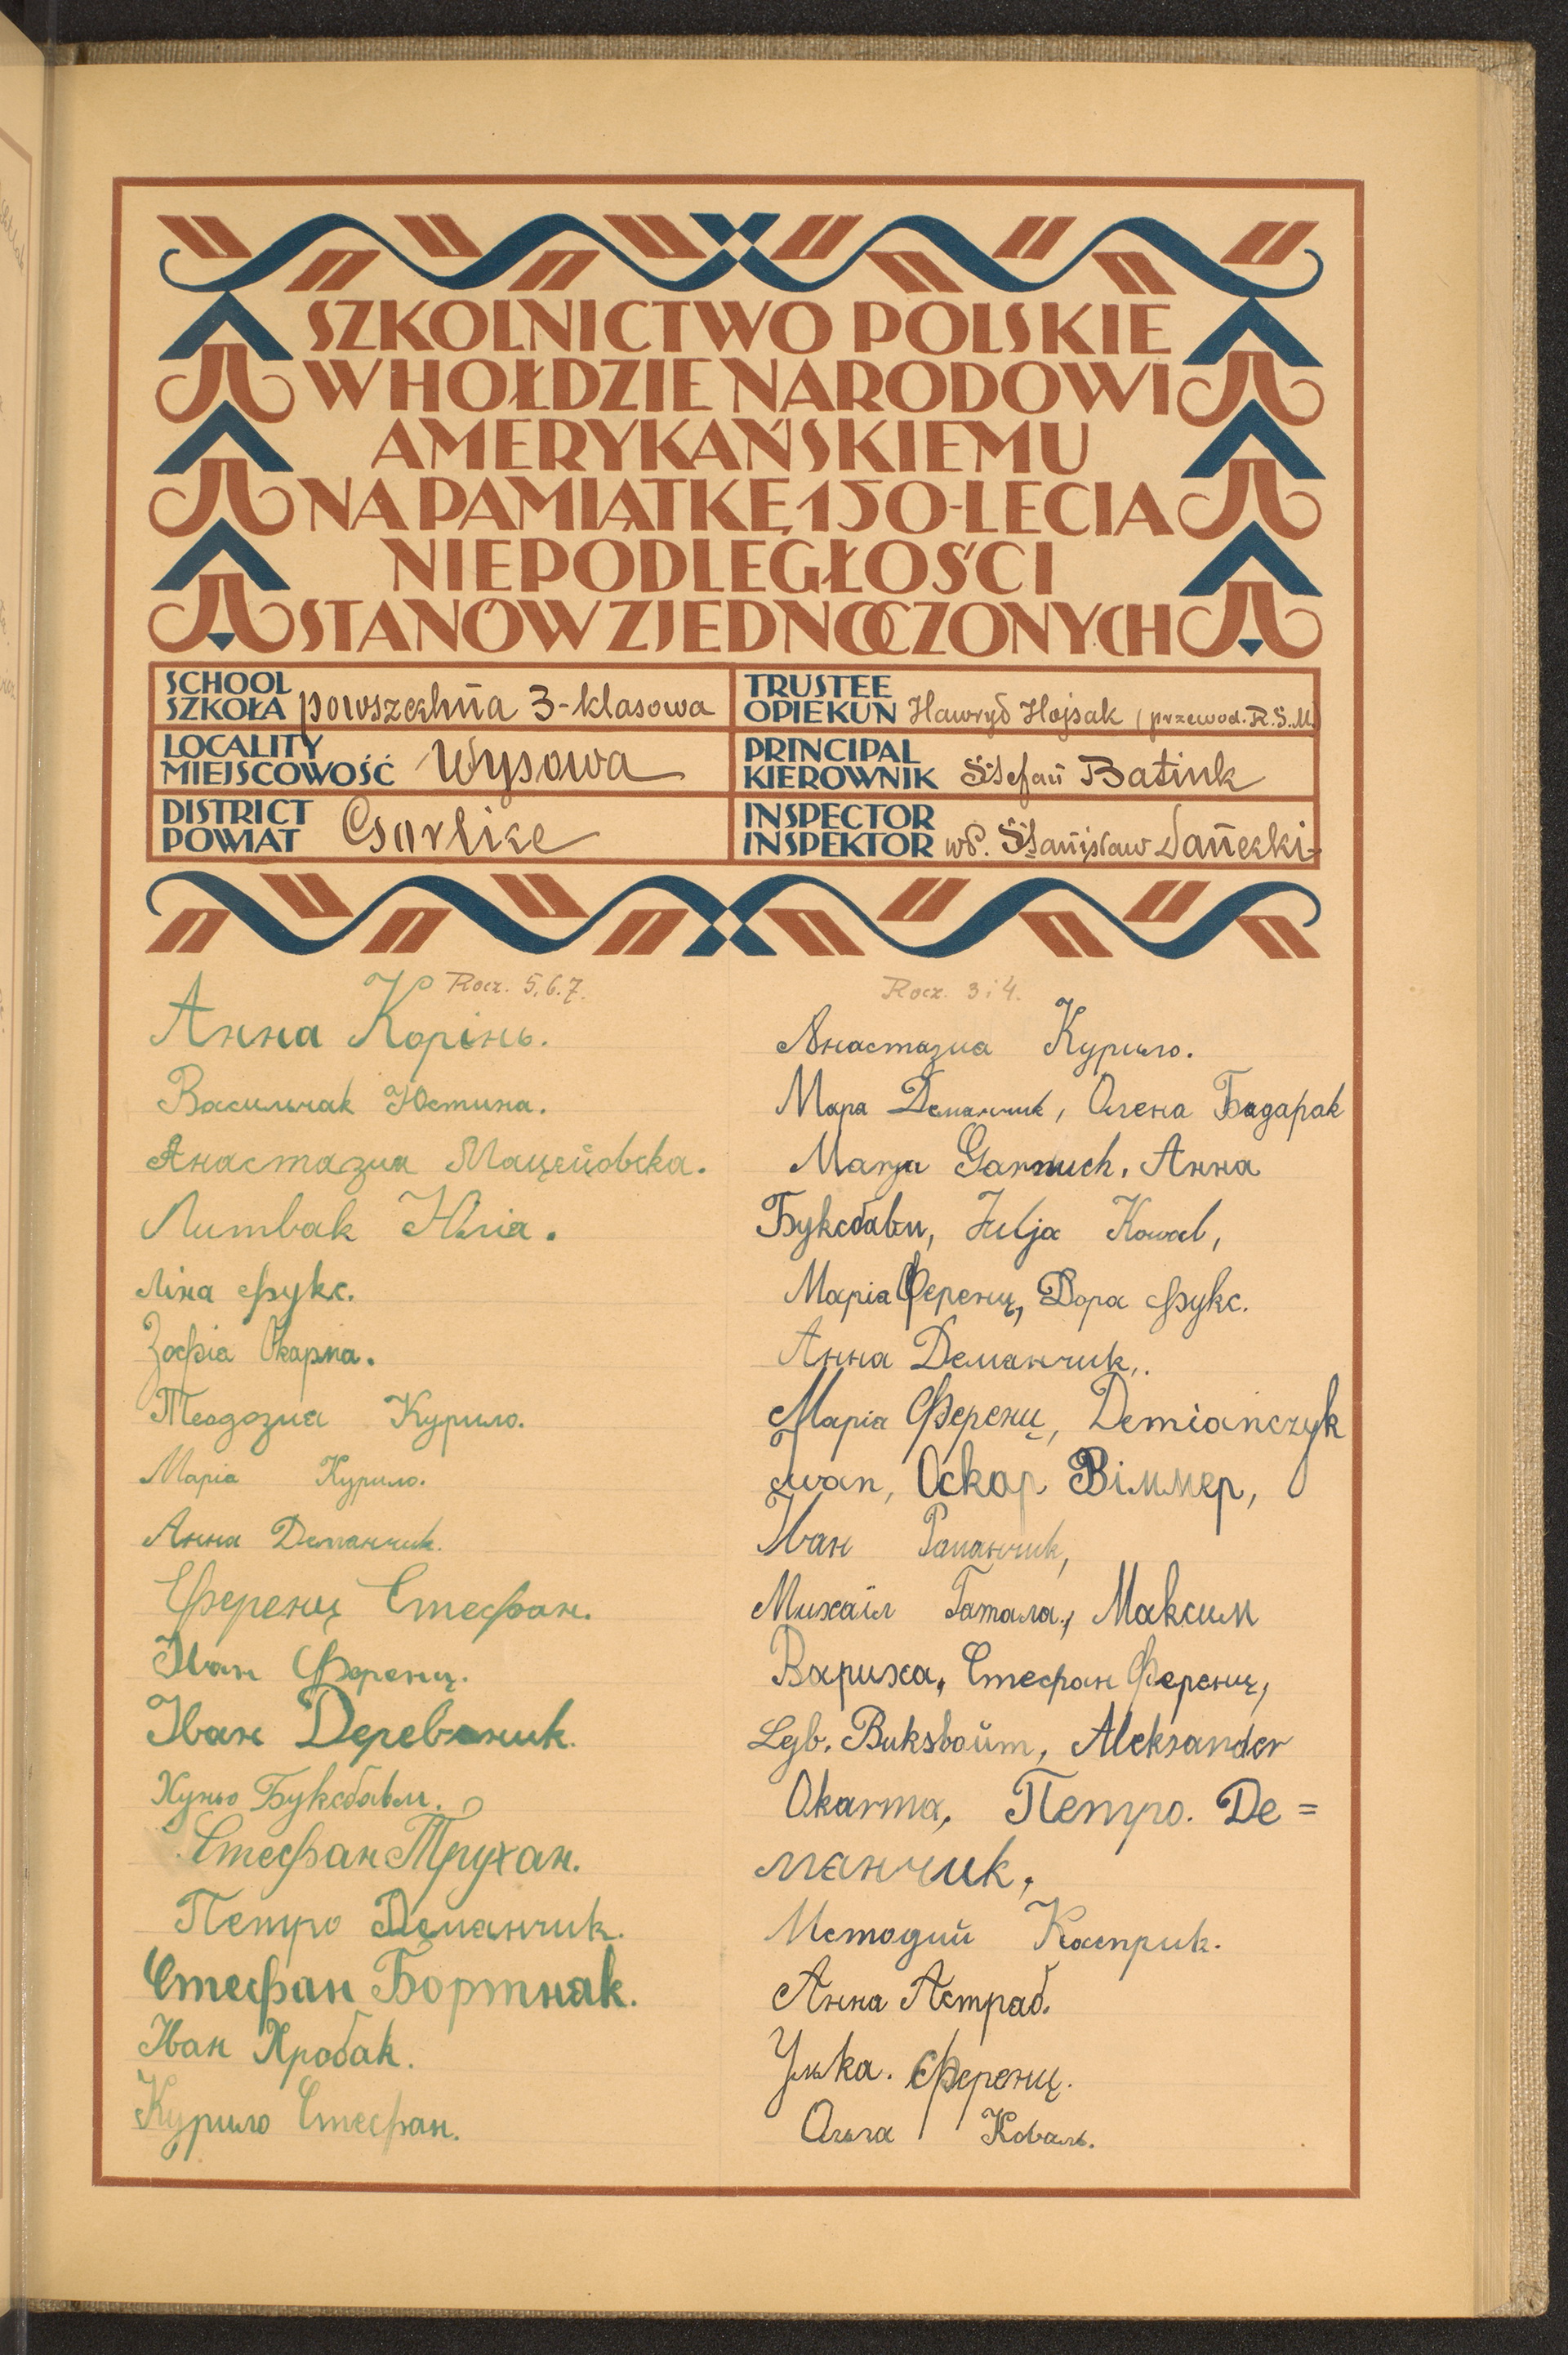 SZKOLNICTWO POLSKIE
W HOŁDZIE NARODOWI
AMERYKAŃSKIEMU
NA PAMIĄTKĘ 150-LECIA
NIEPODLEGŁOŚCI
STANÓW ZJEDNOCZONYCH
SCHOOL
SZKOŁA powszechna 3-klasowa
TRUSTEE
OPIEKUN Hawrył Hojsak (przewod. R.S.M.)
LOCALITY
MIEJSCOWOŚĆ Wysowa
PRINCIPAL
KIEROWNIK Stefan Batiuk
DISTRICT
POWIAT Gorlice
INSPECTOR
INSPEKTOR Stanisław Danecki
Rocz. 5.6.7.
Анна Корінь.
Васильчак Юстина.
Анастазиа Мацейовска.
Литвак Юлia.
Ліна Фукс.
Зофіа Окарма.
Теодозиа Курило.
Маріа Курило.
Анна Деманчик.
Ференц Стефан.
Іван Ференц.
Іван Деревянчик.
Хуньо Буксбавм.
Стефан Трухан.
Петро Деманчик.
Стефан Бортнак.
Іван Хробак.
Курило Стефан.
Rocz. 3 i 4.
Анастазиа Курило.
Мара Деманчик, Олена Бадарак
Marja Garnuch, Анна
Буксбавм, Julja Kowal,
Маріа Ференц, Дора Фукс.
Анна Деманчик,.
Маріа Ференц, Demianczyk
Iwan, Оскар Віммер,
Іван Романчик,
Михаіл Гатала, Максим
Вариха, Стефан Ференц,
Lejb. Buksbaum, Aleksander
Okarma, Петро. Де=
манчик,
Методий Касприк.
Анна Астраб.
Улька. Ференц.
Ольга Коваль.